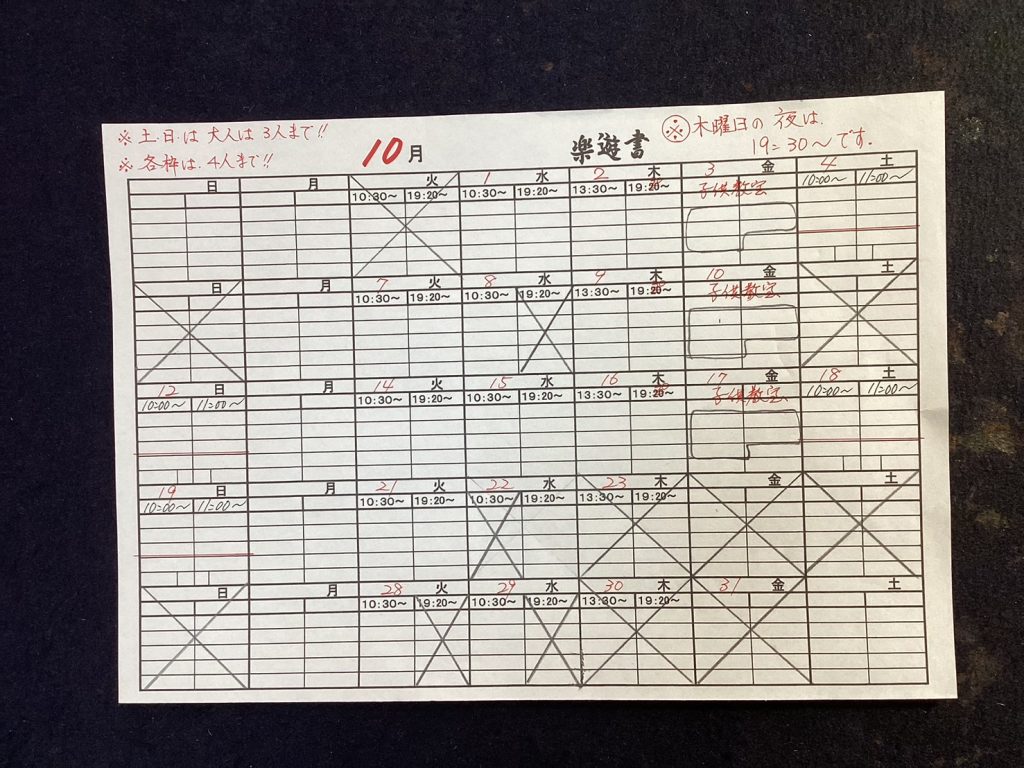 ※ 土.日.は 大人は 3人まで!!
※ 各枠は.4人まで!!
10月
楽遊書
※木曜日の 夜は.
19=30～です.
日 月 火 1 水 2 木 3 金 4 土
10:30～ 19:20～ 10:30～ 19:20～ 13:30～ 19:20～ 子供教室 10=00～ 11=00～
日 月 7 火 8 水 9 木 10 金 土
10:30～ 19:20～ 10:30～ 19:20～ 13:30～ 19:20～ 子供教室
12 日 月 14 火 15 水 16 木 17 金 18 土
10=00～ 11=00～ 10:30～ 19:20～ 10:30～ 19:20～ 13:30～ 19:20～ 子供教室 10=00～ 11=00～
19 日 月 21 火 22 水 23 木 金 土
10=00～ 11=00～ 10:30～ 19:20～ 10:30～ 19:20～ 13:30～ 19:20～
日 月 28 火 29 水 30 木 31 金 土
10:30～ 19:20～ 10:30～ 19:20～ 13:30～ 19:20～